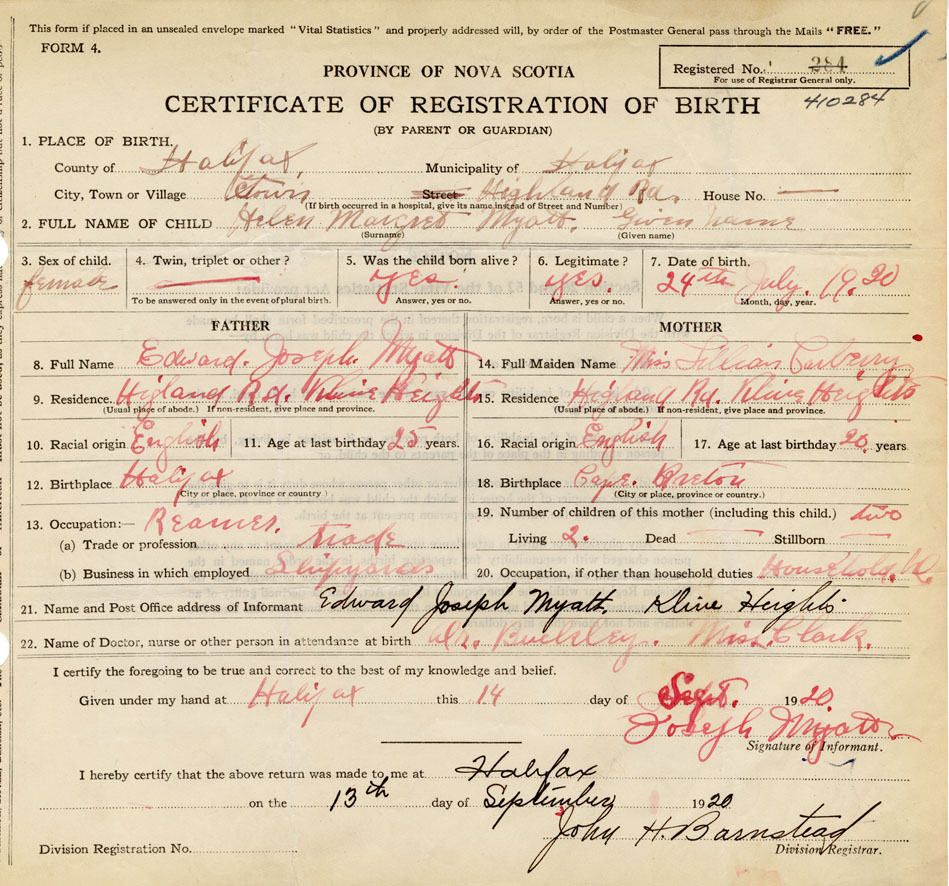 This form if placed in an unsealed envelope marked "Vital Statistics" and properly addressed will, by order of the Postmaster General pass through the Mails "FREE."
FORM 4.
Registered No. 284
For use of Registrar General only.
410284
PROVINCE OF NOVA SCOTIA
CERTIFICATE OF REGISTRATION OF BIRTH
(BY PARENT OR GUARDIAN)
1. PLACE OF BIRTH,
County of Halifax, Municipality of Halifax
City, Town or Village Town Street Highland Rd. House No. —
(If birth occurred in a hospital, give its name instead of Street and Number)
2. FULL NAME OF CHILD Helen Margret Myatt. Given name
(Surname) (Given name)
3. Sex of child. 4. Twin, triplet or other? 5. Was the child born alive? 6. Legitimate? 7. Date of birth.
female — yes. yes. 24th July. 1920
To be answered only in the event of plural birth. Answer, yes or no. Answer, yes or no. Month, day, year.
FATHER MOTHER
8. Full Name Edward. Joseph. Myatt 14. Full Maiden Name Miss Lillian
9. Residence. Higland Rd. Kline Heights 15. Residence Highland Rd. Kline Heights
(Usual place of abode.) If non-resident, give place and province. (Usual place of abode.) If non-resident, give place and province.
10. Racial origin English 11. Age at last birthday 25 years. 16. Racial origin English 17. Age at last birthday 20. years
12. Birthplace Halifax 18. Birthplace Cape. Breton
(City or place, province or country) (City or place, province or country.)
13. Occupation:— Reamer. 19. Number of children of this mother (including this child.) two
(a) Trade or profession trade Living 2. Dead — Stillborn —
(b) Business in which employed Shipyards 20. Occupation, if other than household duties Household.
21. Name and Post Office address of Informant Edward Joseph Myatt. Kline Heights.
22. Name of Doctor, nurse or other person in attendance at birth Dr. Miss. Clark.
I certify the foregoing to be true and correct to the best of my knowledge and belief.
Given under my hand at Halifax this 14 day of Sept. 1920
Joseph Myatt
Signature of Informant.
I hereby certify that the above return was made to me at Halifax
on the 13th day of September 1920
John H. Barnstead
Division Registration No. Division Registrar.